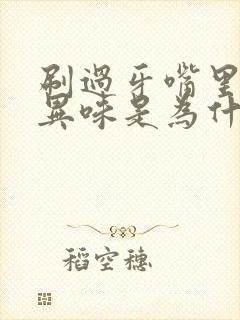 刷過牙嘴里
異味是為什
稻空穗